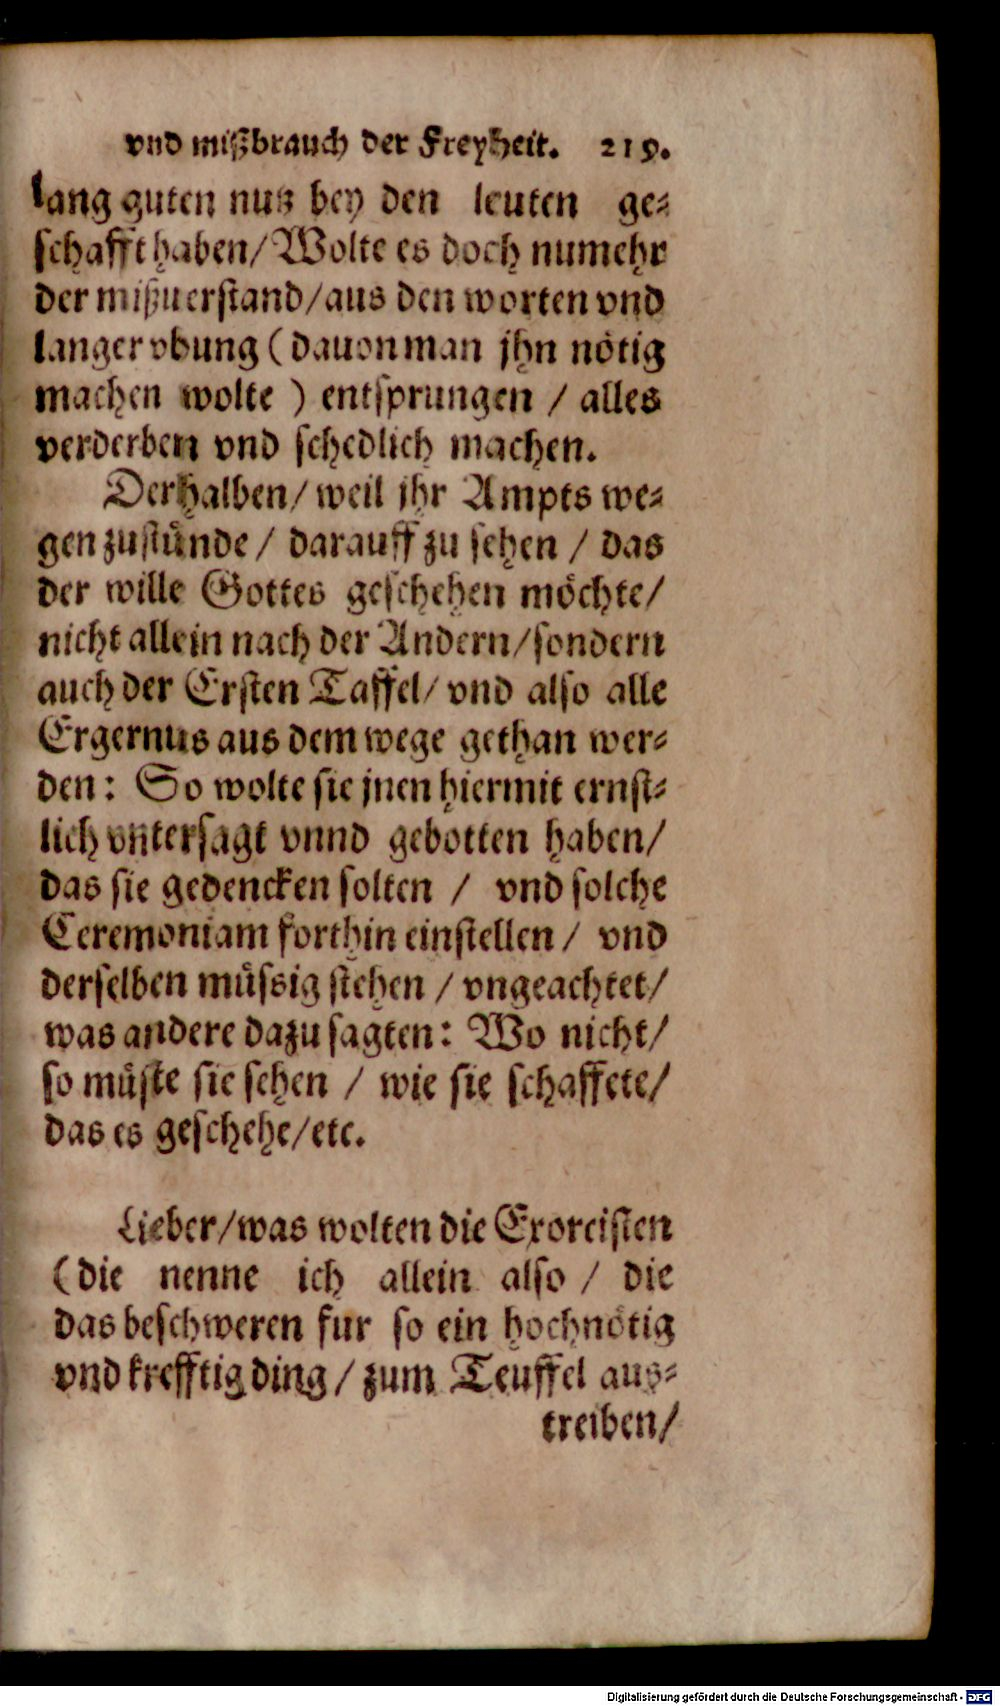 vnd mißbrauch der Freyheit. 219.
lang guten nutz bey den leuten ge-
schafft haben/ Wolte es doch numehr
der mißuerstand/ aus den worten vnd
langer vbung (dauon man jhn nötig
machen wolte ) entsprungen / alles
verderben vnd schedlich machen.
Derhalben/ weil jhr Ampts we-
gen zustünde / darauff zu sehen / das
der wille Gottes geschehen möchte/
nicht allein nach der Andern/ sondern
auch der Ersten Taffel/ vnd also alle
Ergernus aus dem wege gethan wer-
den: So wolte sie jnen hiermit ernst-
lich vntersagt vnnd gebotten haben/
das sie gedencken solten / vnd solche
Ceremoniam forthin einstellen / vnd
derselben müssig stehen / vngeachtet/
was andere dazu sagten: Wo nicht/
so müste sie sehen / wie sie schaffete/
das es geschehe/ etc.
Lieber/ was wolten die Exorcisten
(die nenne ich allein also / die
das beschweren fur so ein hochnötig
vnd krefftig ding / zum Teuffel aus-
treiben/
Digitalisierung gefördert durch die Deutsche Forschungsgemeinschaft - DFG